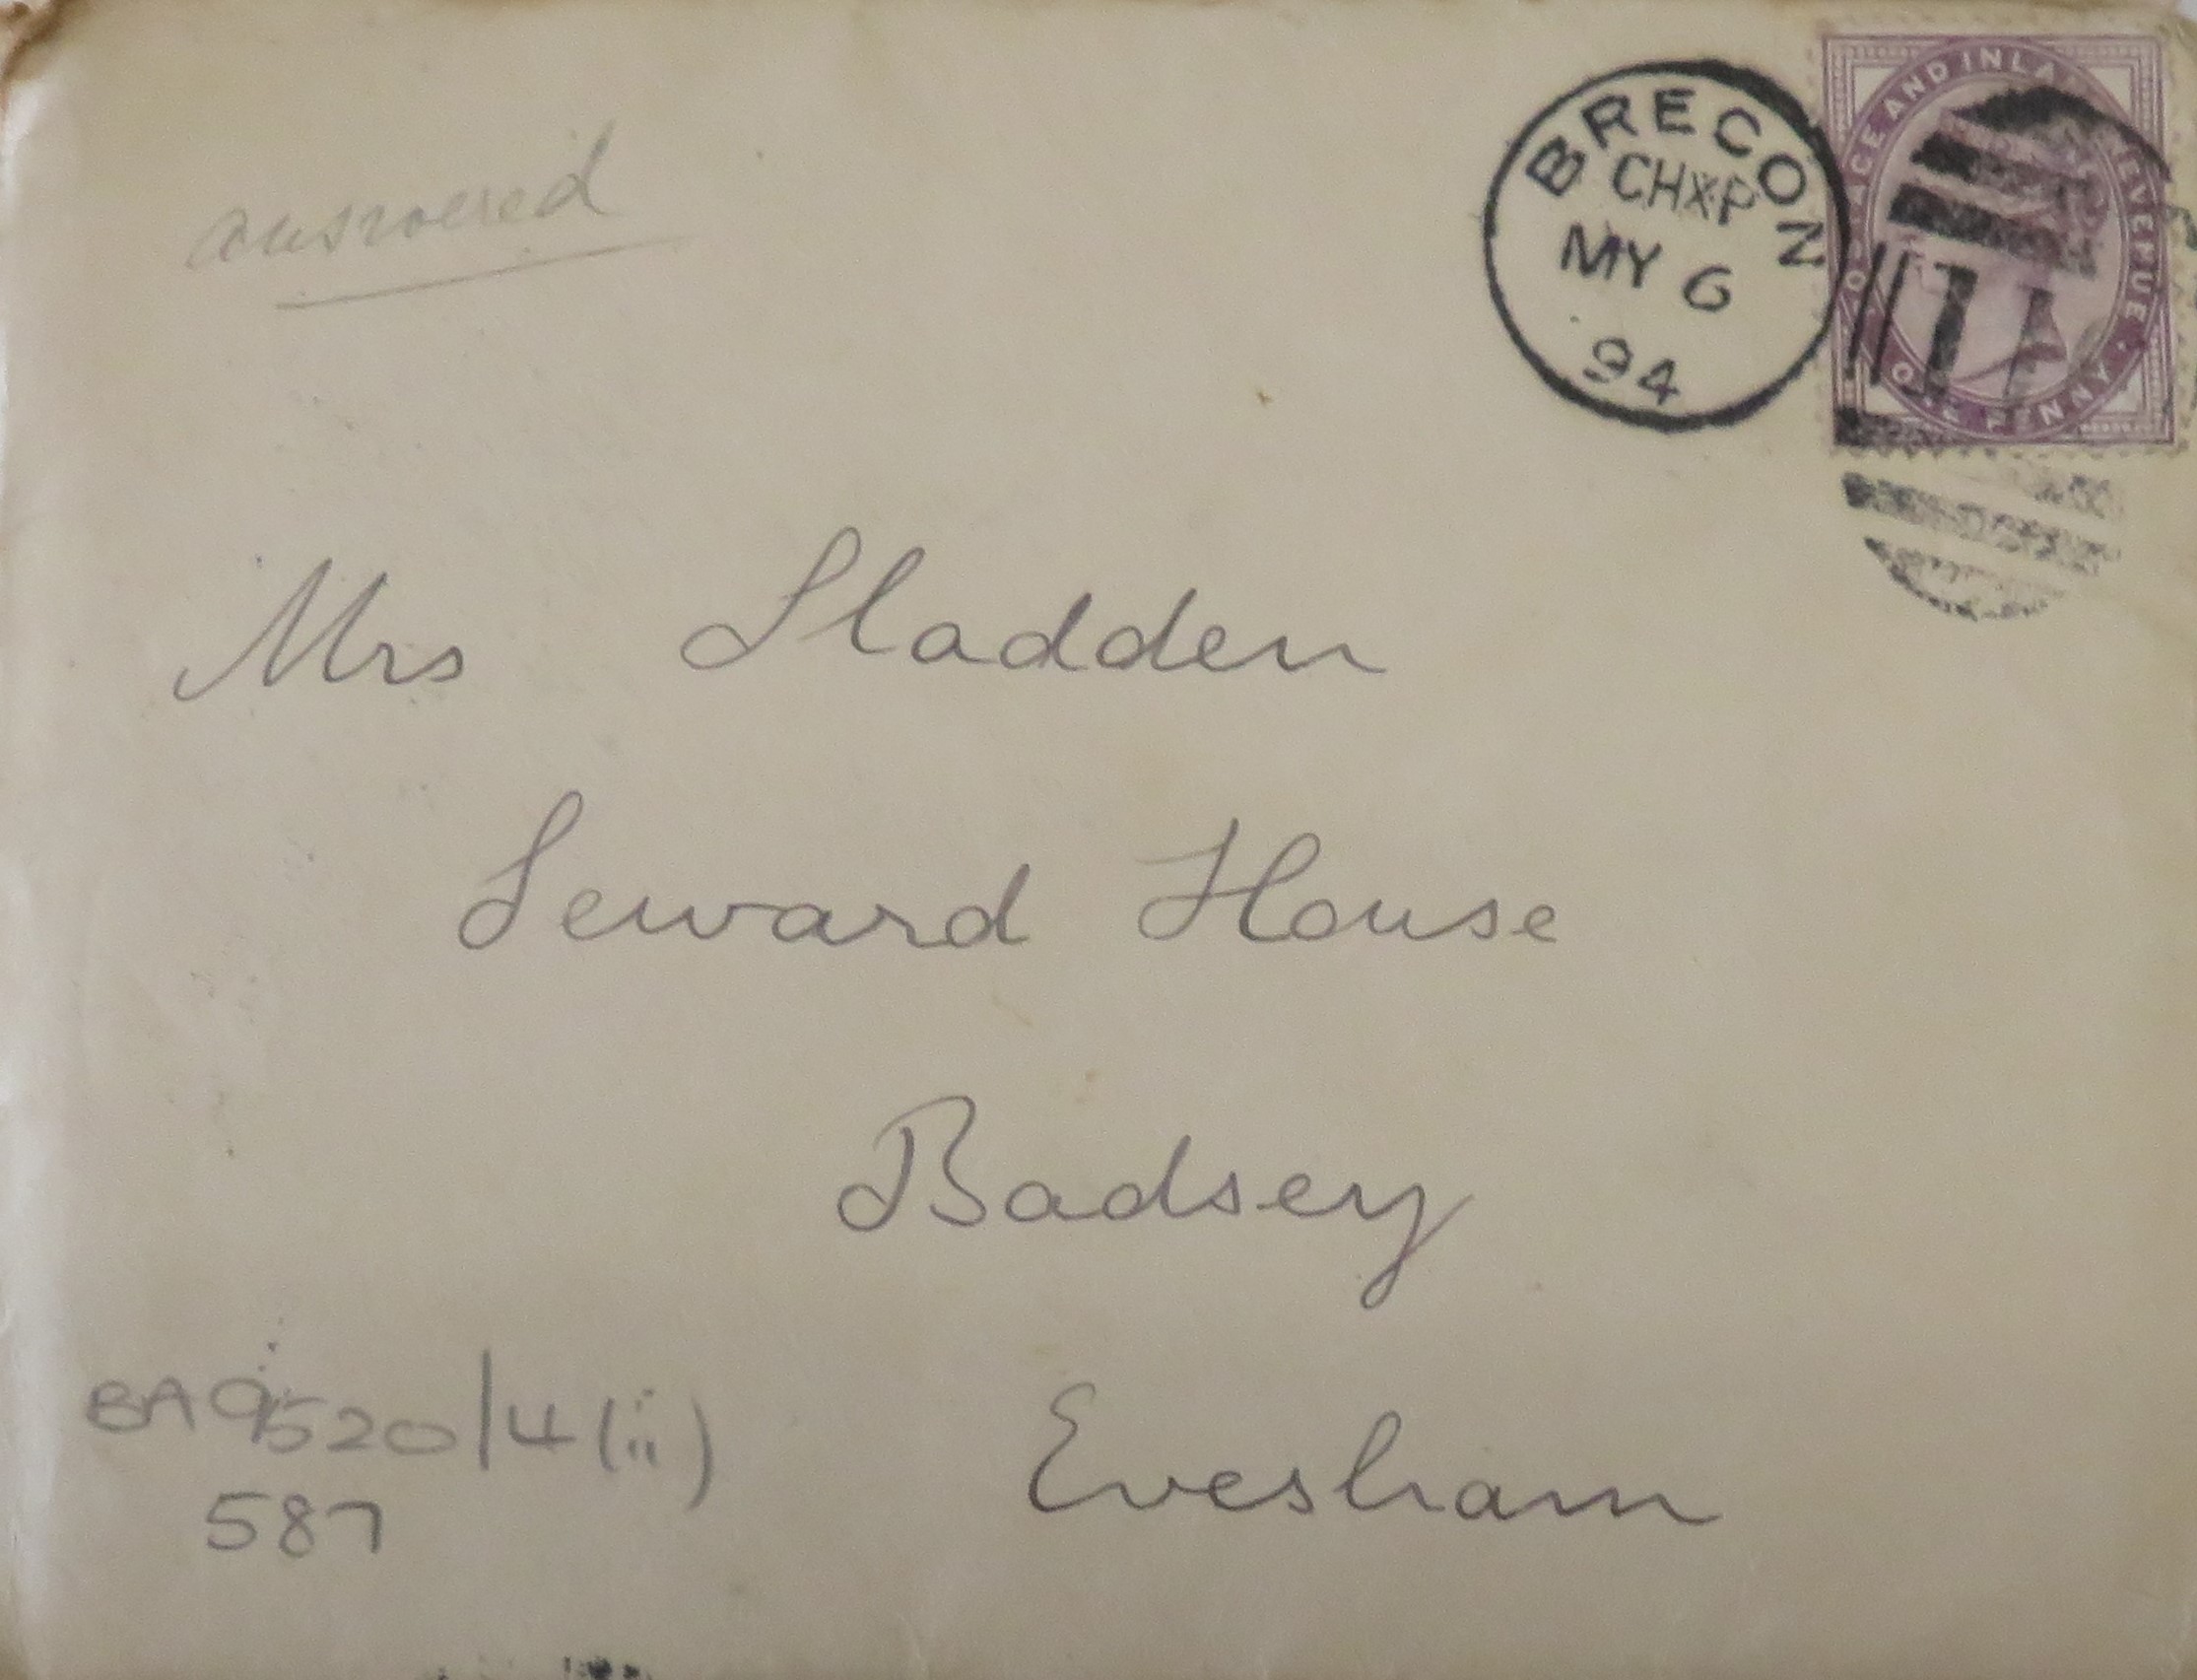 answered
BRECON
CHXP
MY 6
94
POSTAGE AND INLAND REVENUE
ONE PENNY
Mrs Sladden
Seward House
Badsey
Evesham
BA 9520/4(ii)
587